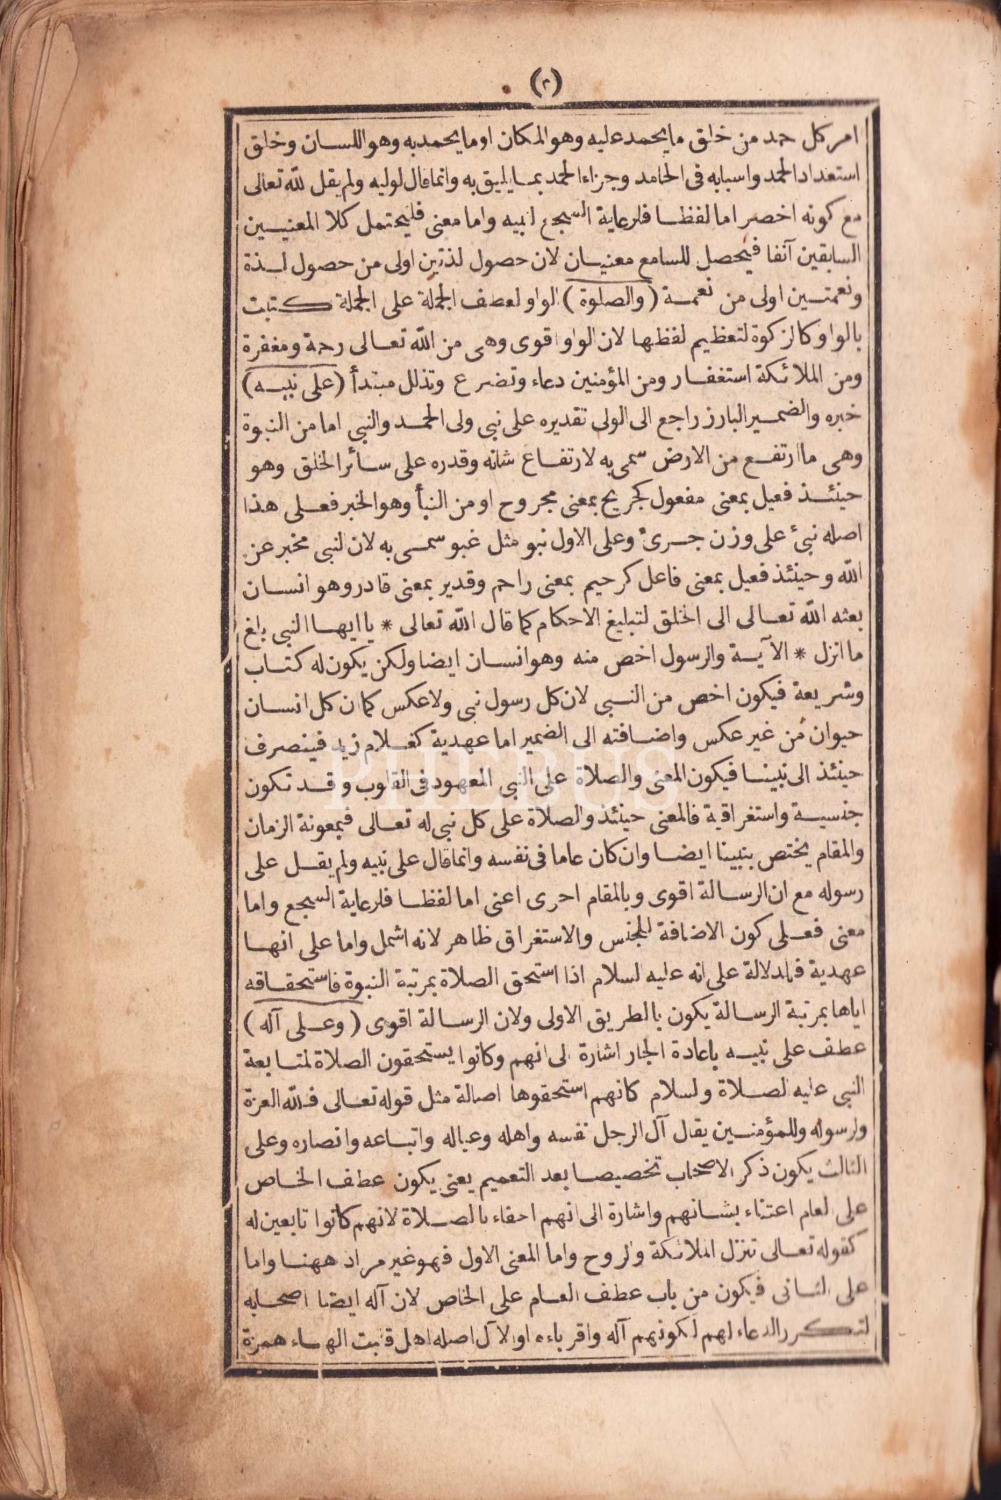 (٢)
امر كل حمد من خلق ما يحمد عليه وهو المكان او ما يحمد به وهو اللسان وخلق
استعداد الحمد واسبابه فى الحامد وجزاء الحمد بما يليق به وانما قال لوليه ولم يقل لله تعالى
مع كونه اخصر اما لفظا فلرعاية السجع لنبيه واما معنى فليحتمل كلا المعنيين
السابقين آنفا فيحصل للسامع معنيان لان حصول لذتين اولى من حصول لذة
ونعمتين اولى من نعمة (والصلوة) الواو لعطف الجملة على الجملة كتبت
بالواو كالزكوة لتعظيم لفظها لان الواو اقوى وهى من الله تعالى رحمة ومغفرة
ومن الملائكة استغفار ومن المؤمنين دعاء وتضرع وتذلل مبتدأ (على نبيه)
خبره والضمير البارز راجع الى الولى تقديره على نبى ولى الحمد والنبى اما من النبوة
وهى ما ارتفع من الارض سمى به لارتفاع شانه وقدره على سائر الخلق وهو
حينئذ فعيل بمعنى مفعول كجريح بمعنى مجروح او من النبأ وهو الخبر فعلى هذا
اصله نبئ على وزن جرئ وعلى الاول نبو مثل غبو سمى به لان لنبى مخبر عن
الله وحينئذ فعيل بمعنى فاعل كرحيم بمعنى راحم وقدير بمعنى قادر وهو انسان
بعثه الله تعالى الى الخلق لتبليغ الاحكام كما قال الله تعالى * يا ايها النبى بلغ
ما انزل * الآية والرسول اخص منه وهو انسان ايضا ولكن يكون له كتاب
وشريعة فيكون اخص من النبى لان كل رسول نبى ولا عكس كما ن كل انسان
حيوان من غير عكس واضافته الى الضمير اما عهدية كغلام زيد فينصرف
حينئذ الى نبينا فيكون المعنى والصلاة على النبى المعهود فى القلوب وقد تكون
جنسية واستغراقية فالمعنى حينئذ والصلاة على كل نبى له تعالى فبمعونة الزمان
والمقام يختص بنبينا ايضا وان كان عاما فى نفسه وانما قال على نبيه ولم يقل على
رسوله مع ان الرسالة اقوى وبالمقام احرى اعنى اما لفظا فلرعاية السجع واما
معنى فعلى كون الاضافة للجنس والاستغراق ظاهر لانه اشمل واما على انها
عهدية فللدلالة على انه عليه لسلام اذا استحق الصلاة بمرتبة النبوة فاستحقاقه
اياها بمرتبة الرسالة يكون بالطريق الاولى ولان الرسالة اقوى (وعلى آله)
عطف على نبيه باعادة الجار اشارة الى انهم وكانوا يستحقون الصلاة لمتابعة
النبى عليه لصلاة ولسلام كانهم استحقوها اصالة مثل قوله تعالى فلله العزة
ولرسوله وللمؤمنين يقال آل الرجل نفسه واهله وعياله واتباعه وانصاره وعلى
الثالث يكون ذكر الاصحاب تخصيصا بعد التعميم يعنى يكون عطف الخاص
على لعام اعتناء بشانهم واشارة الى انهم احقاء بالصلاة لانهم كانوا تابعين له
كقوله تعالى تنزل الملائكة والروح واما المعنى الاول فهو غير مراد ههنا واما
على الثانى فيكون من باب عطف العام على الخاص لان آله ايضا اصحابه
لتكرر الدعاء لهم لكونهم آله واقرباءه او لا آل اصله اهل قلبت الهاء همزة